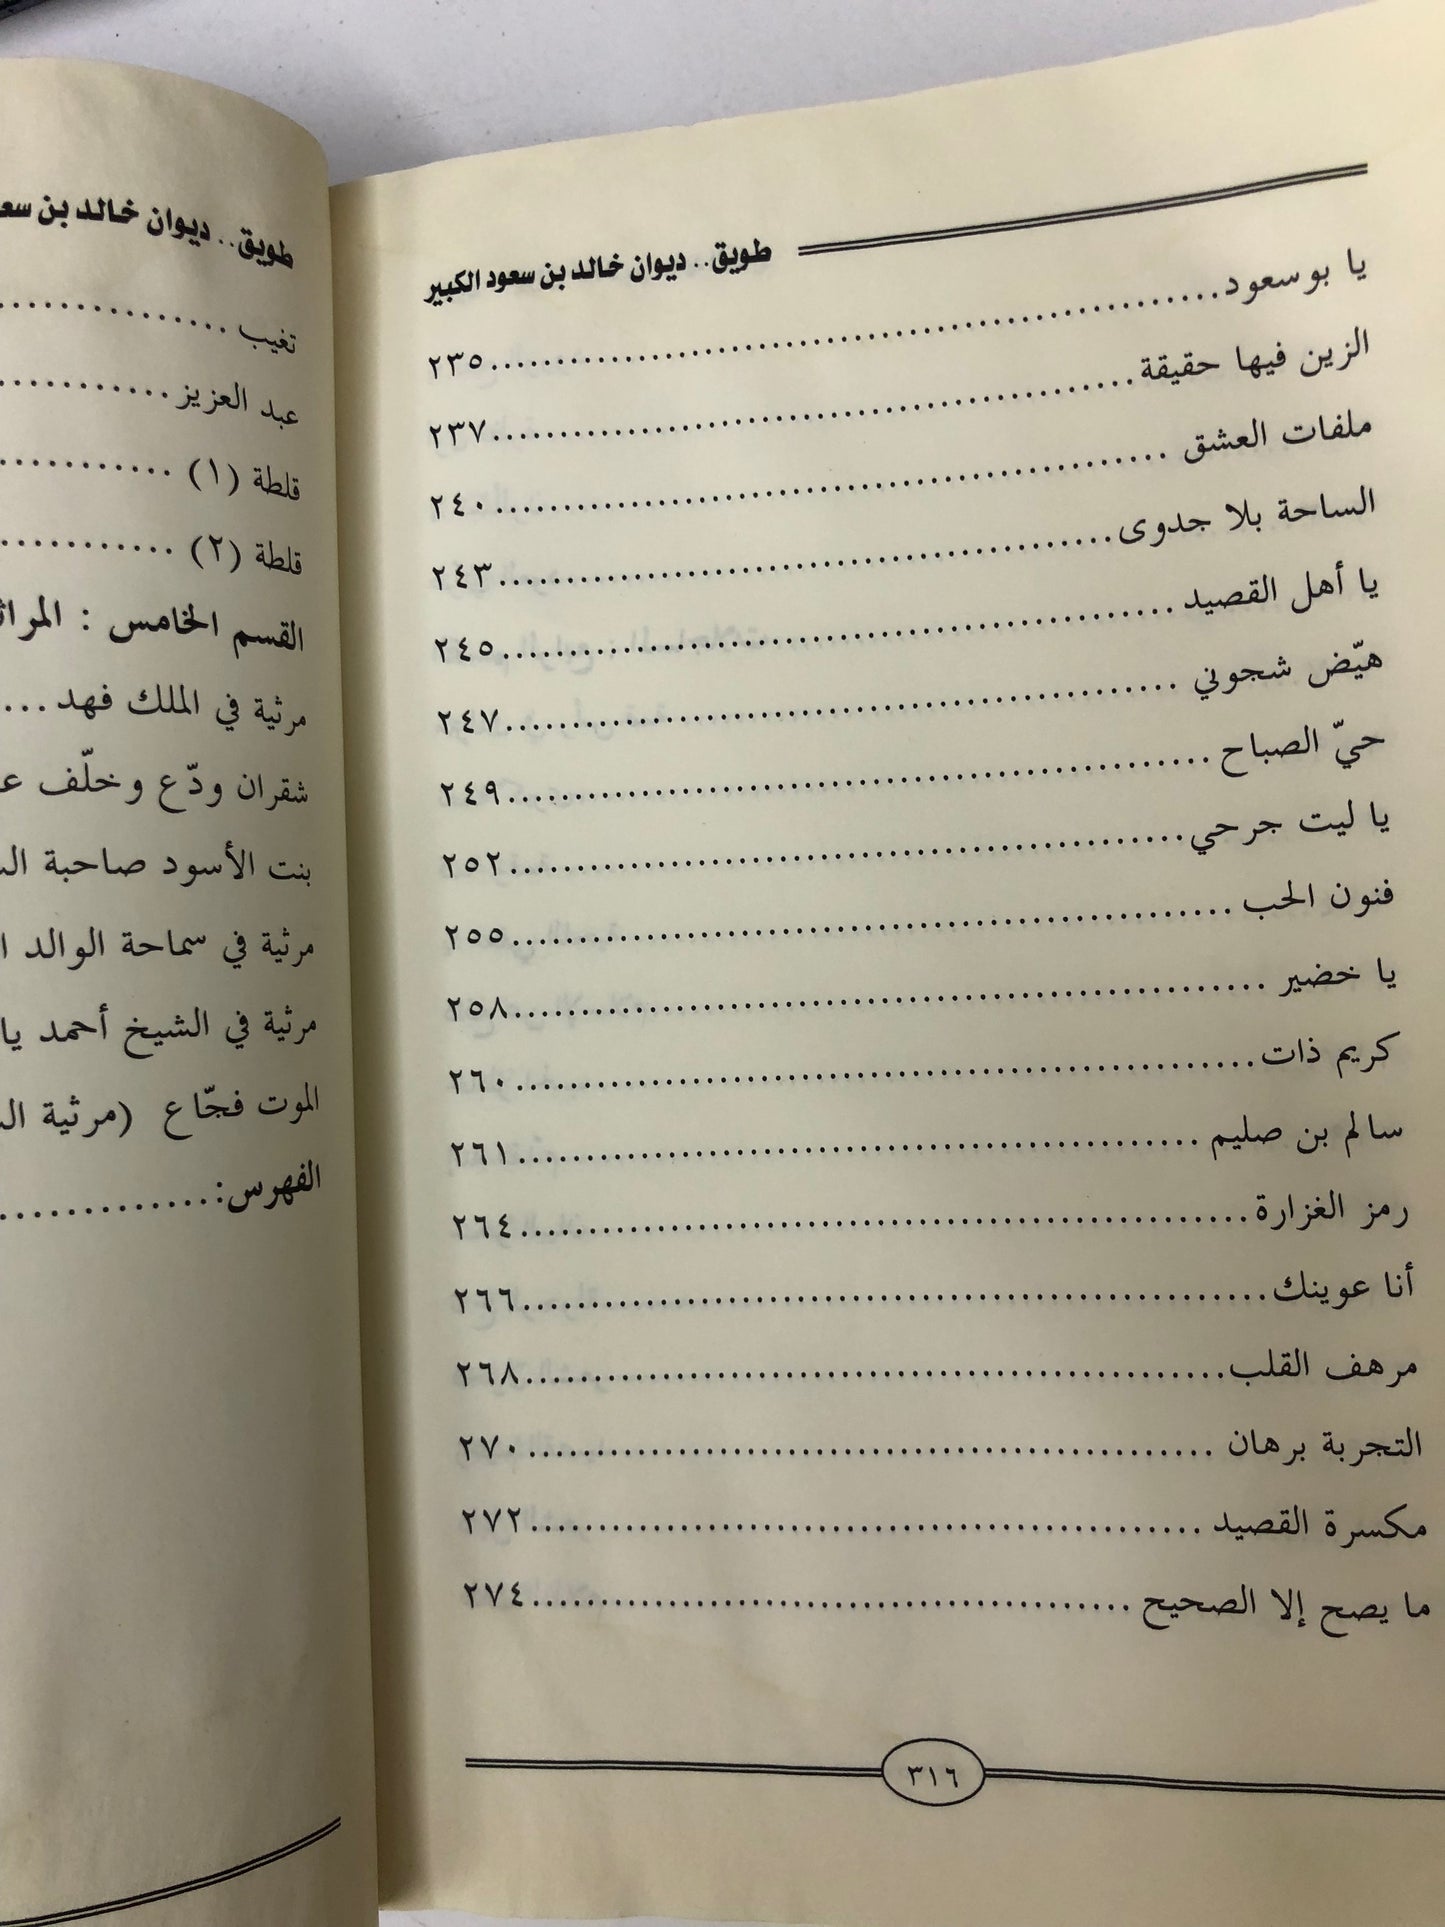 طويق.. ديوان خالد بن سعود الكبير
يا بو سعود.....٢٣٥
الزين فيها حقيقة.....٢٣٧
ملفات العشق.....٢٤٠
الساحة بلا جدوى.....٢٤٣
يا أهل القصيد.....٢٤٥
هيّض شجوني.....٢٤٧
حيّ الصباح.....٢٤٩
يا ليت جرحي.....٢٥٢
فنون الحب.....٢٥٥
يا خضير.....٢٥٨
كريم ذات.....٢٦٠
سالم بن صليم.....٢٦١
رمز الغزارة.....٢٦٤
أنا عوينك.....٢٦٦
مرهف القلب.....٢٦٨
التجربة برهان.....٢٧٠
مكسرة القصيد.....٢٧٢
ما يصح إلا الصحيح.....٢٧٤
٣١٦
طويق.. ديوان خالد بن
تغيب.....
عبد العزيز.....
قلطة (١).....
قلطة (٢).....
القسم الخامس :
مرثية في الملك فهد.....
شقران ودّع وخلّف
بنت الأسود صاحبة
مرثية في سماحة الوالد
مرثية في الشيخ أحمد
الموت فجّاع (مرثية
الفهرس:.....